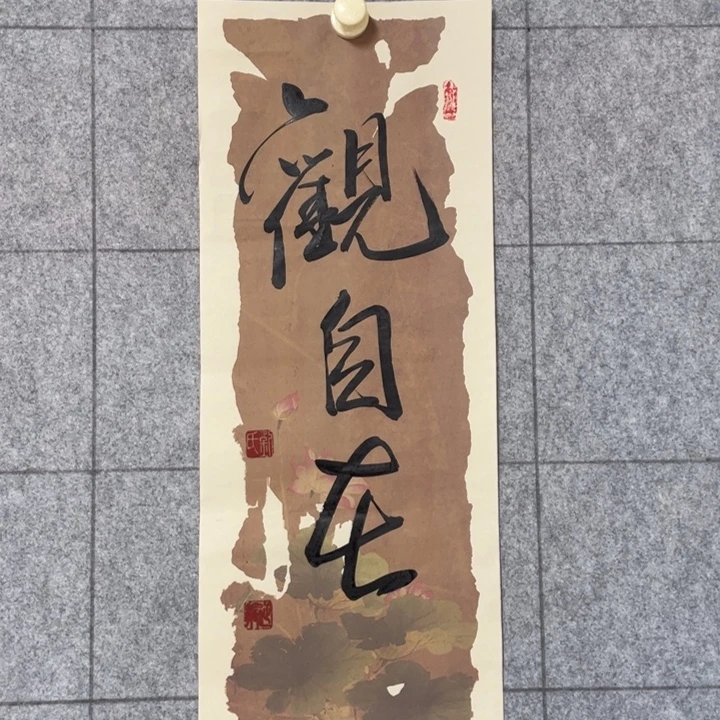 觀自在